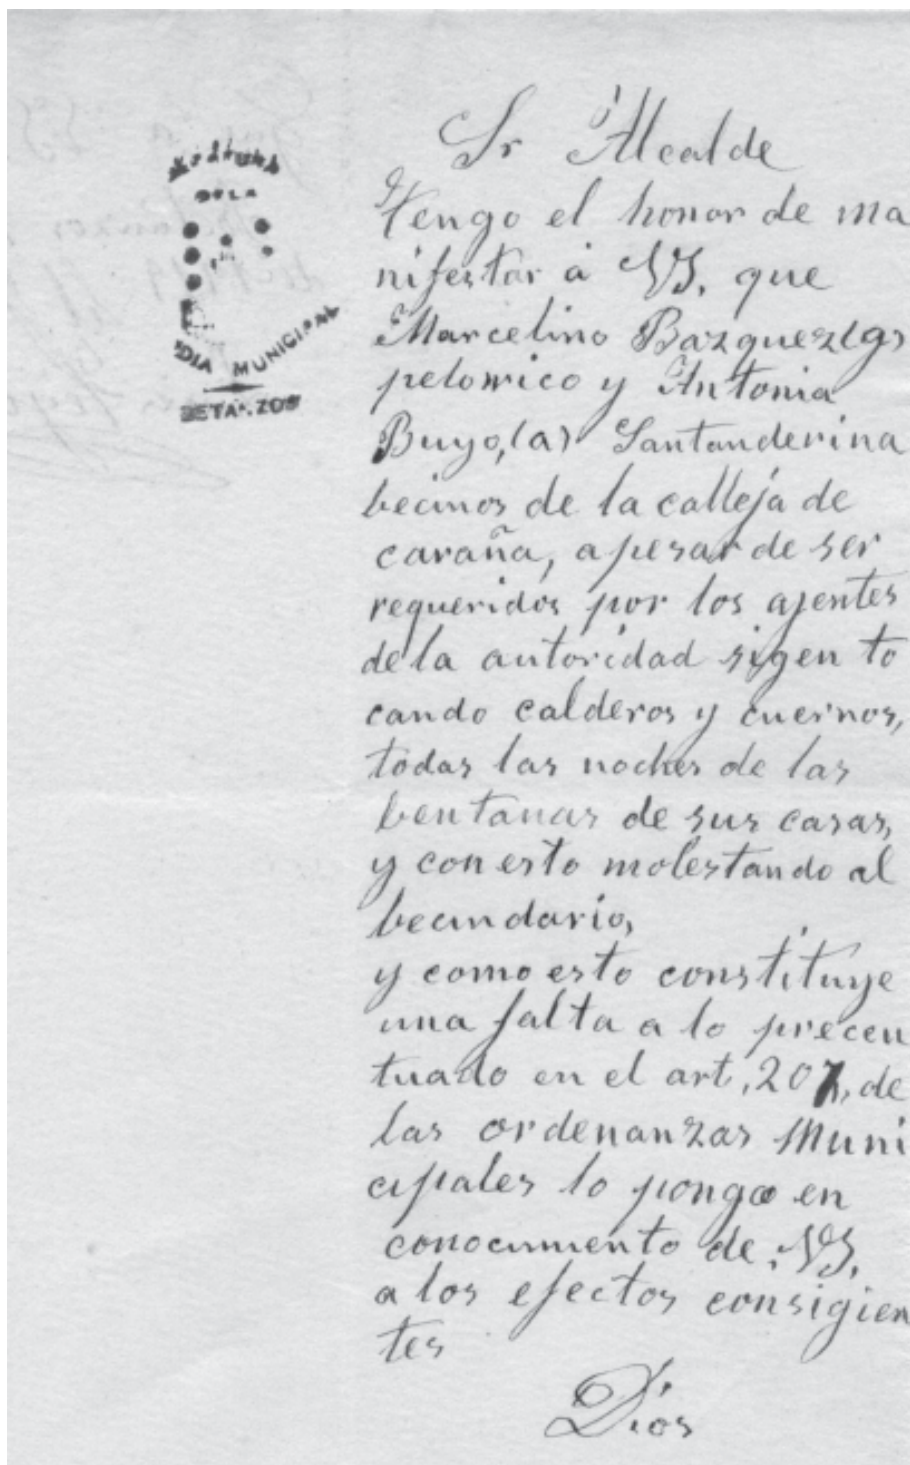 DE LA
DIA MUNICIPAL
BETANZOS
Sr Alcalde
Tengo el honor de ma
nifestar á VS, que
Marcelino Bazquez
pelomico y Antonia
Buyo, (a) Santanderina
becinos de la calleja de
caraña, apesar de ser
requeridos por los ajentes
de la autoridad sigen to
cando calderos y cuernos,
todas las noches de las
bentanas de sus casas,
y con esto molestando al
becindario,
y como esto constituye
una falta a lo precen
tuado en el art, 207, de
las ordenanzas Muni
cipales lo pongo en
conocimiento de VS,
a los efectos consigien
tes
Dios